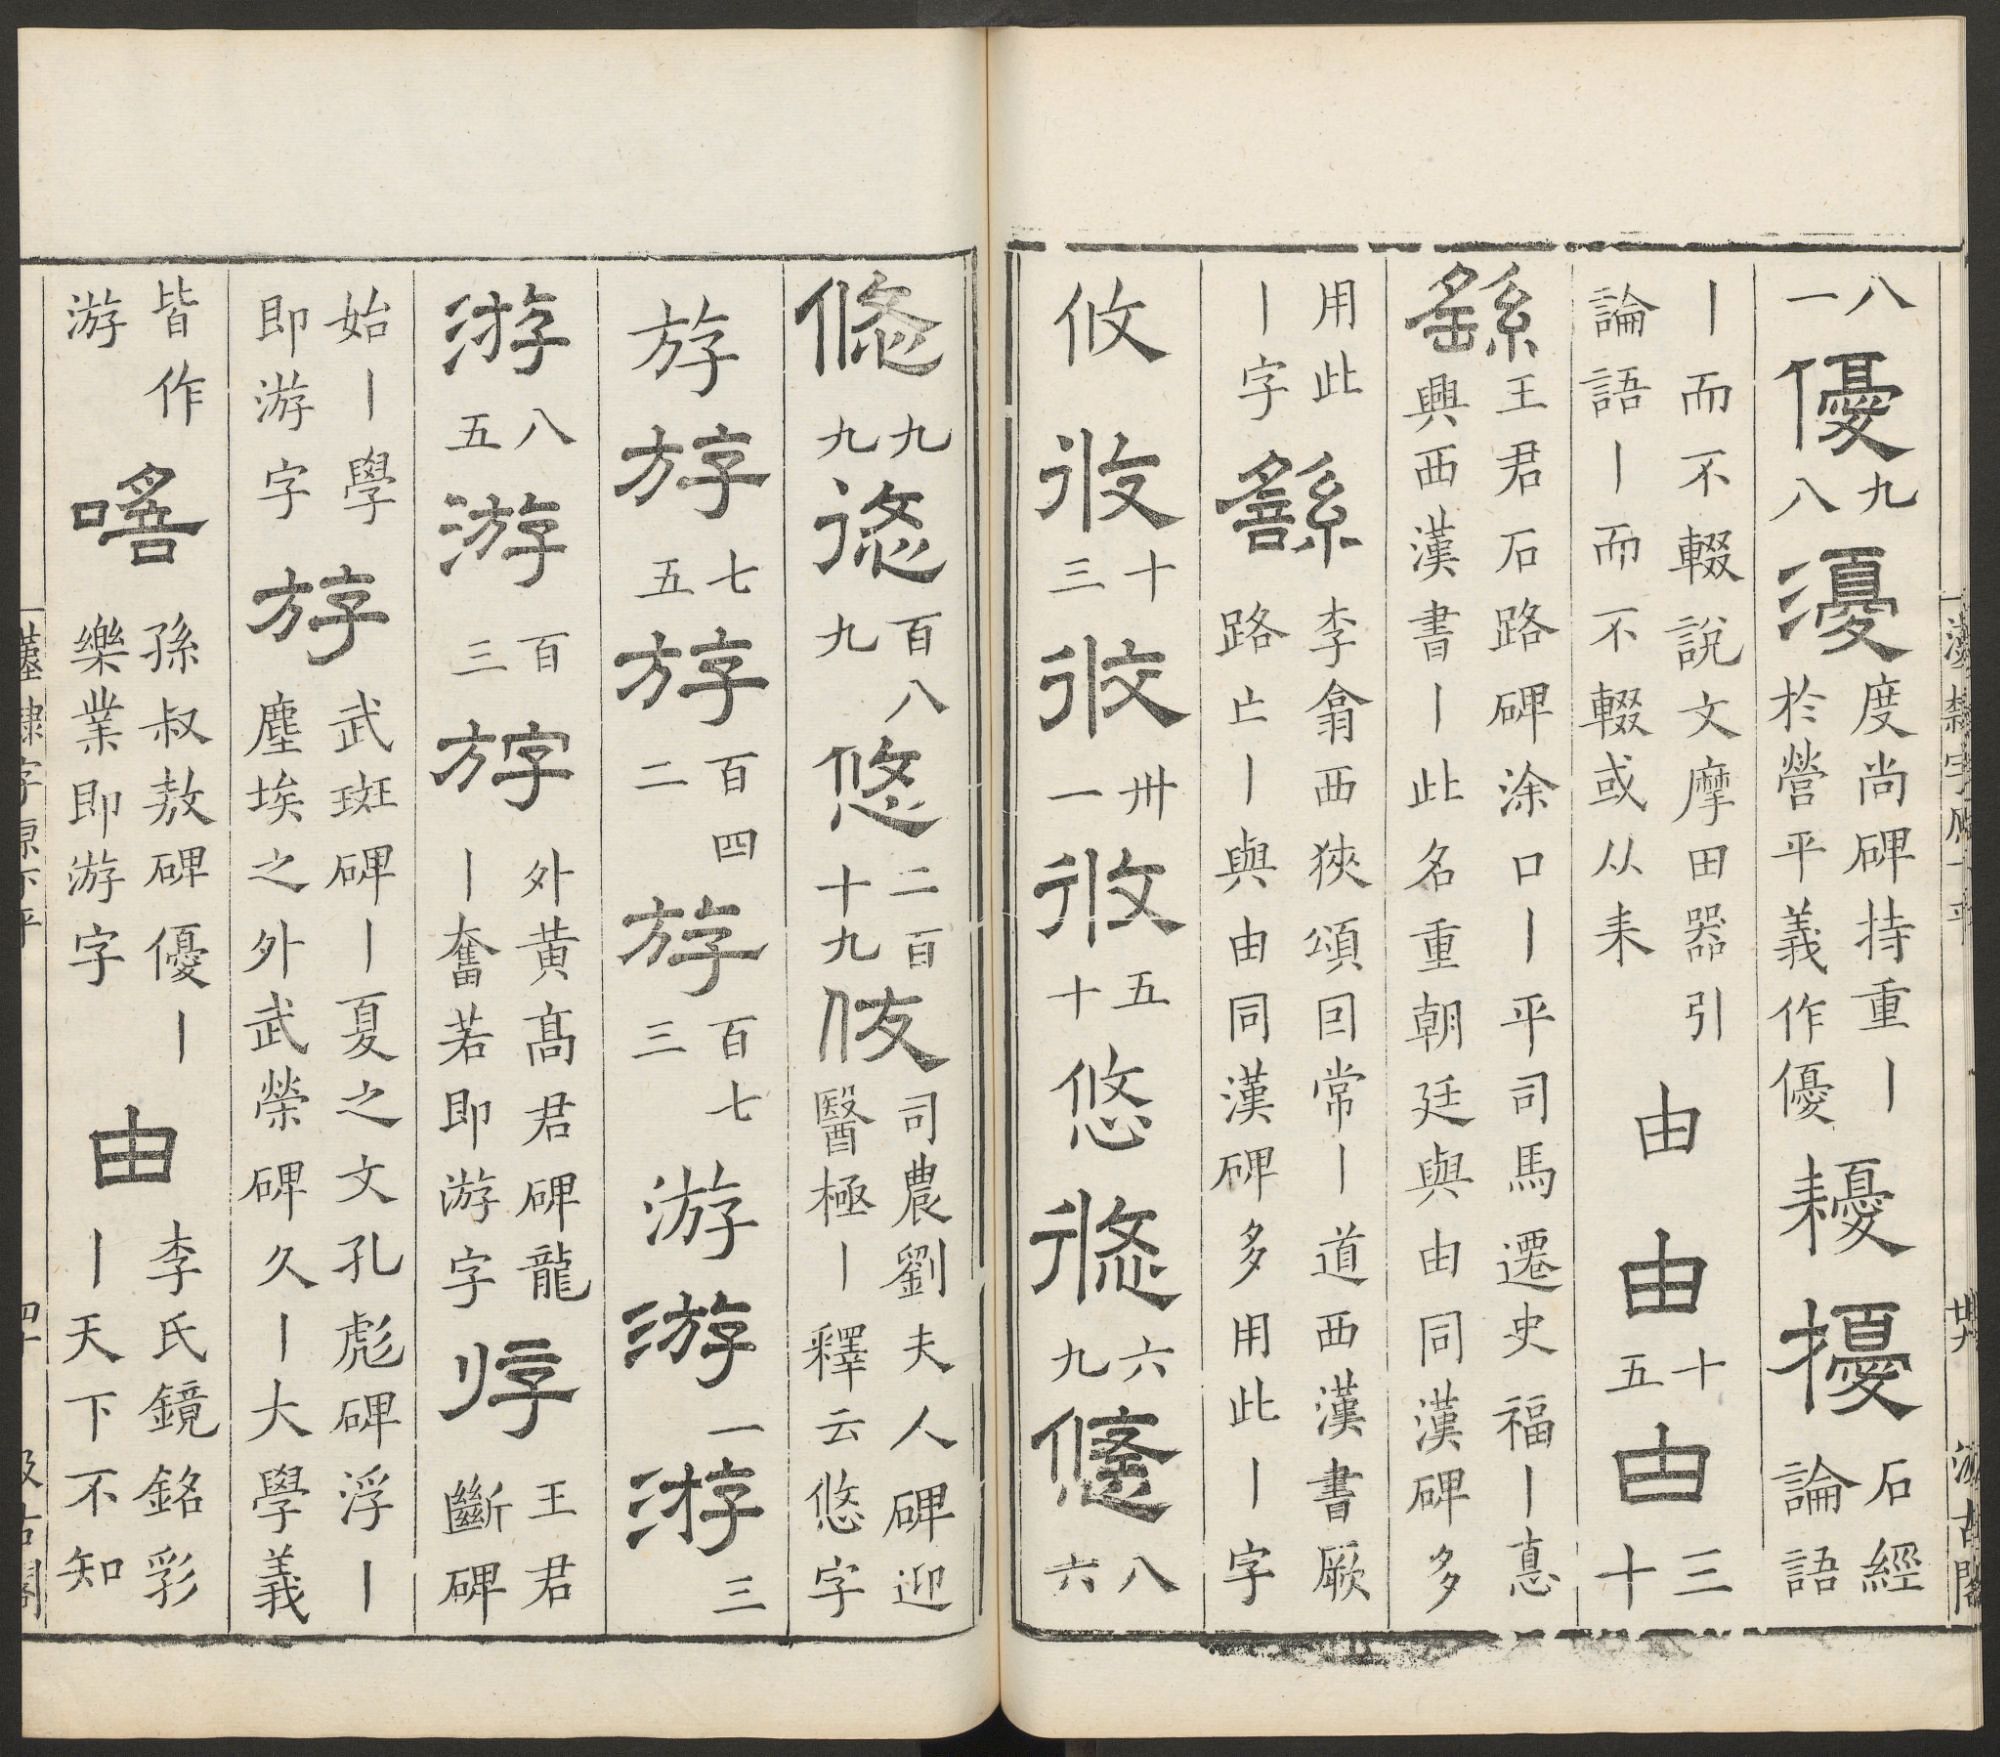 漢隸字原下平 汲古閣
八一優九八瀀度尚碑持重丨於營平義作優耰擾石經論語
丨而不輟說文摩田器引論語丨而不輟或从耒由由十五由三十
繇王君石路碑涂口丨平司馬遷史福丨惪興西漢書丨此名重朝廷與由同漢碑多
用此丨字繇李翕西狹頌回常丨道西漢書厥路亡丨與由同漢碑多用此丨字
攸攸十三攸卅一攸五十悠悠六九悠八六
悠九九悠百八九悠二百十九攸司農劉夫人碑迎醫極丨釋云悠字
斿斿七五斿百四二斿百七三游游一游三
游八五游百三斿外黃高君碑龍丨奮若即游字斿王君斷碑
始丨學即游字斿武斑碑丨夏之文孔彪碑浮丨塵埃之外武榮碑久丨大學義
皆作游孫叔敖碑優丨樂業即游字由李氏鏡銘彩丨天下不知
漢隸字原下平 四十 汲古閣